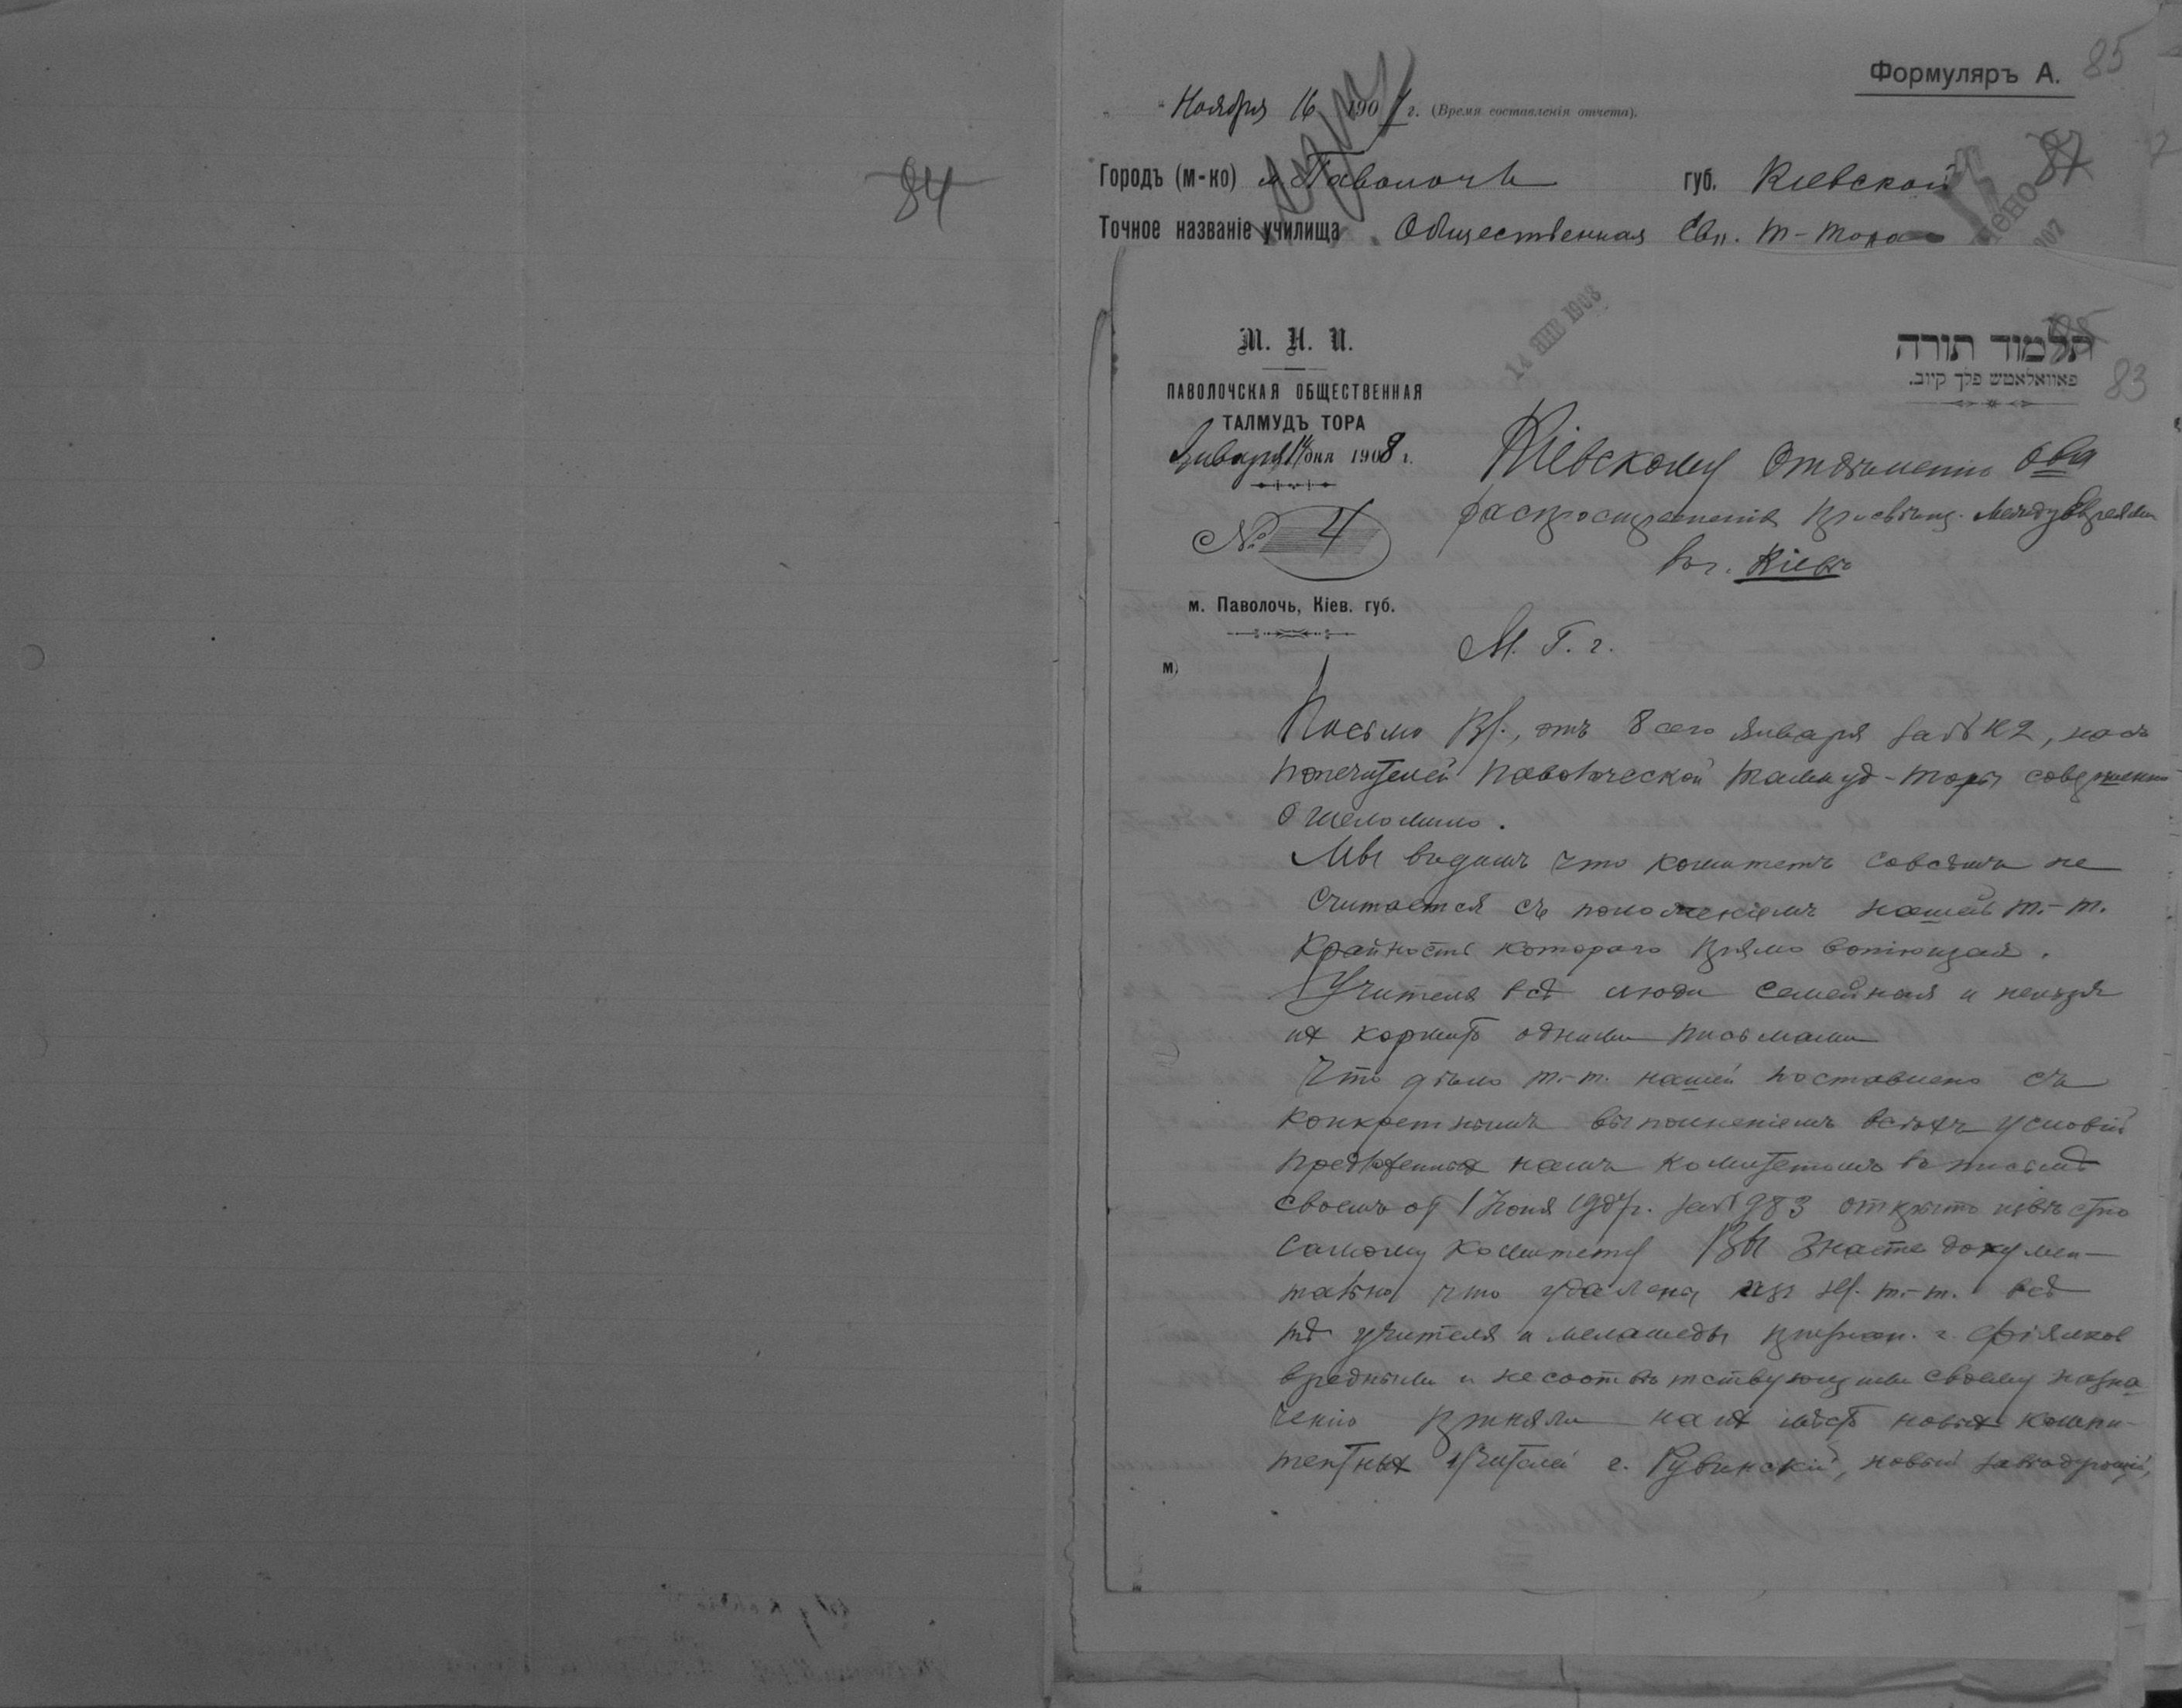 84
Формуляръ А. 85
Ноября 16 1907 г. (Время составленія отчета).
Городъ (м-ко) м. Паволочь губ. Кіевской 87
Точное названіе училища Общественная Евр. Т-Тора
14 ЯНВ 1908
М. Н. П.
תלמוד תורה
פאוואלאטש פלך קיוב.
83
ПАВОЛОЧСКАЯ ОБЩЕСТВЕННАЯ
ТАЛМУДЪ ТОРА
Января 11 дня 1908 г.
№ 4
м. Паволочь, Кіев. губ.
Кіевскому Отдѣленію о-ва
распространенія просвѣщ. между Евреями
в г. Кіевѣ
М. Г. г.
Письмо Ві., отъ 8 сего Января за № 12, насъ
попечителей Паволоческой талмуд-торы совершенно
ошеломило.
Мы видимъ что комитетъ совсѣмъ не
считается съ положеніемъ нашей т.-т.
крайность котораго прямо вопіющая.
Учителя всѣ люди семейныя и нельзя
их кормить одними письмами
Что дѣло т.-т. нашей поставлено съ
конкретнымъ выполненіемъ всѣхъ условій
предложенных намъ комитетомъ в письмѣ
своемъ от 1 Іюня 1907 г. за № 983 открыто извѣстно
самому комитету Вы знаете докумен-
тально что удалены изъ н. т.-т. всѣ
тѣ учителя и меламеды признан. г. Фіялков
вредными и несоотвѣтствующими своему назна
ченію приняли на их мѣсто новых компи-
тентных учителей г. Рувинскій, новый завѣдующій,